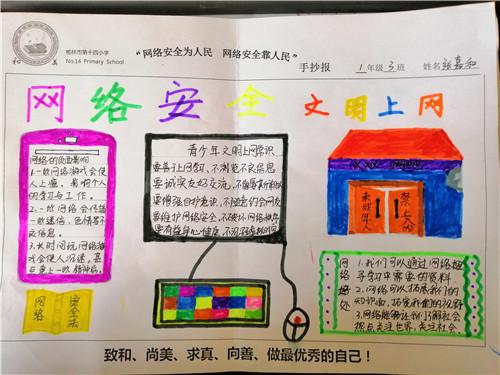 榆林市第十四小学
No.14 Primary School
和 美
“网络安全为人民 网络安全靠人民”
手抄报
1年级3班
姓名张嘉和
网络安全 文明上网
网络的负面影响
1.一款网络游戏会使
人上瘾，影响个人
的学习与工作。
2.一款网络会传播
一些迷信、色情等不
良信息。
3.长时间玩网络游
戏会使人沉迷，甚
网络
安全法
青少年文明上网常识
要善于上网学习，不浏览不良信息
要诚实友好交流，不侮辱欺诈他人
要增强自护意识，不随意约会网友
要维护网络安全，不破坏网络秩序
要有益身心健康，不沉溺虚拟时空
未成年人
禁止入内
网络好处
1.我们可以通过网络搜
寻学习中需要的资料
2.网络可以拓展我们的
知识面，拓宽我们的视野
3.网络能够让我们了解社会
热点关注世界，关注社会
致和、尚美、求真、向善、做最优秀的自己！